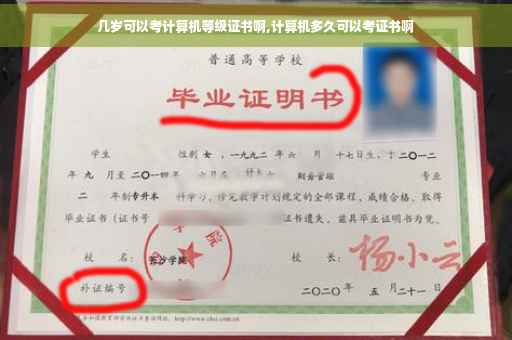 几岁可以考计算机等级证书啊,计算机多久可以考证书啊
普通高等学校
毕业证明书
学生 性别 女 ，一九九二 年 六 月 十七日生，于 二〇一二
年 九 月至 二〇一四 年 六月在 财务管理 专业
二 年制 专升本 科学习，修完教学计划规定的全部课程，成绩合格，取得
毕业证书（证书号 证书遗失，兹具毕业证明书为凭。
校 名： 长沙学院 校 长： 杨小云
补证编号 二〇二〇年 五 月二十一日